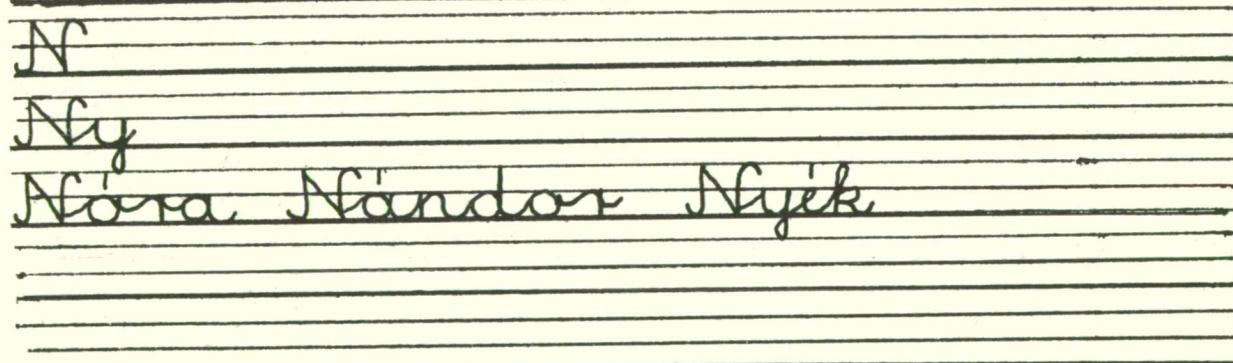 N
Ny
Nóra Nándor Nyék